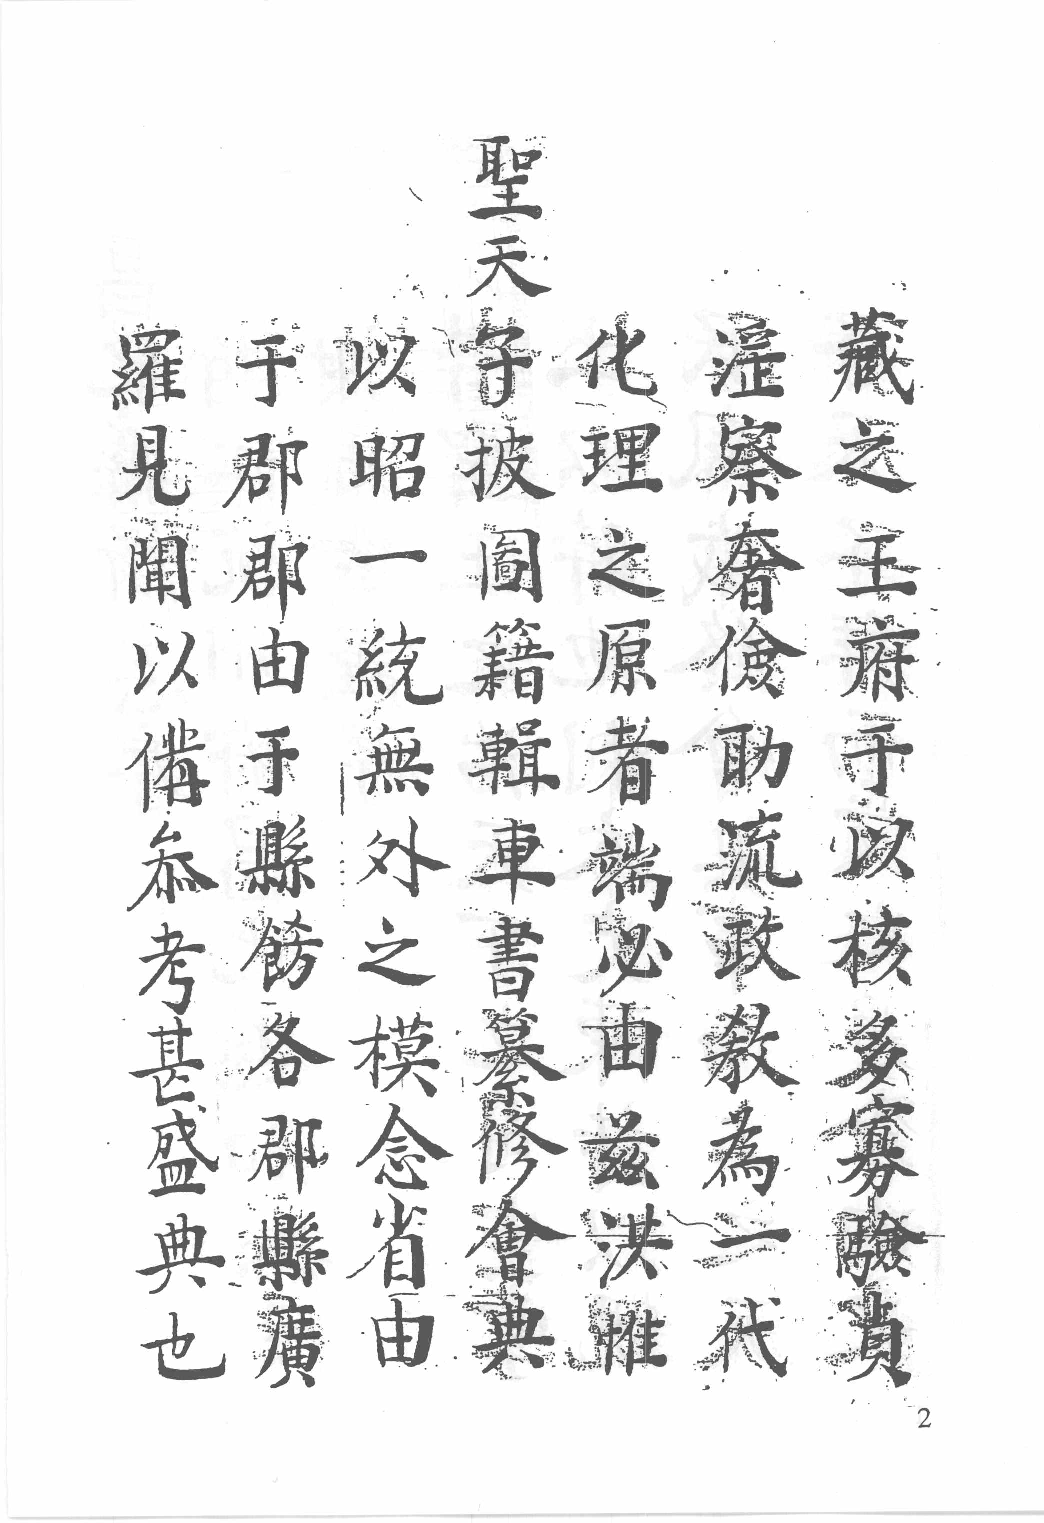 藏之王府于以核多寡驗貞
淫察奢儉助流政教為一代
化理之原者端必由兹洪惟
聖天子披圖籍輯車書纂修會典
以昭一統無外之模念省由
于郡郡由于縣餙各郡縣廣
羅見聞以備叅考甚盛典也
2